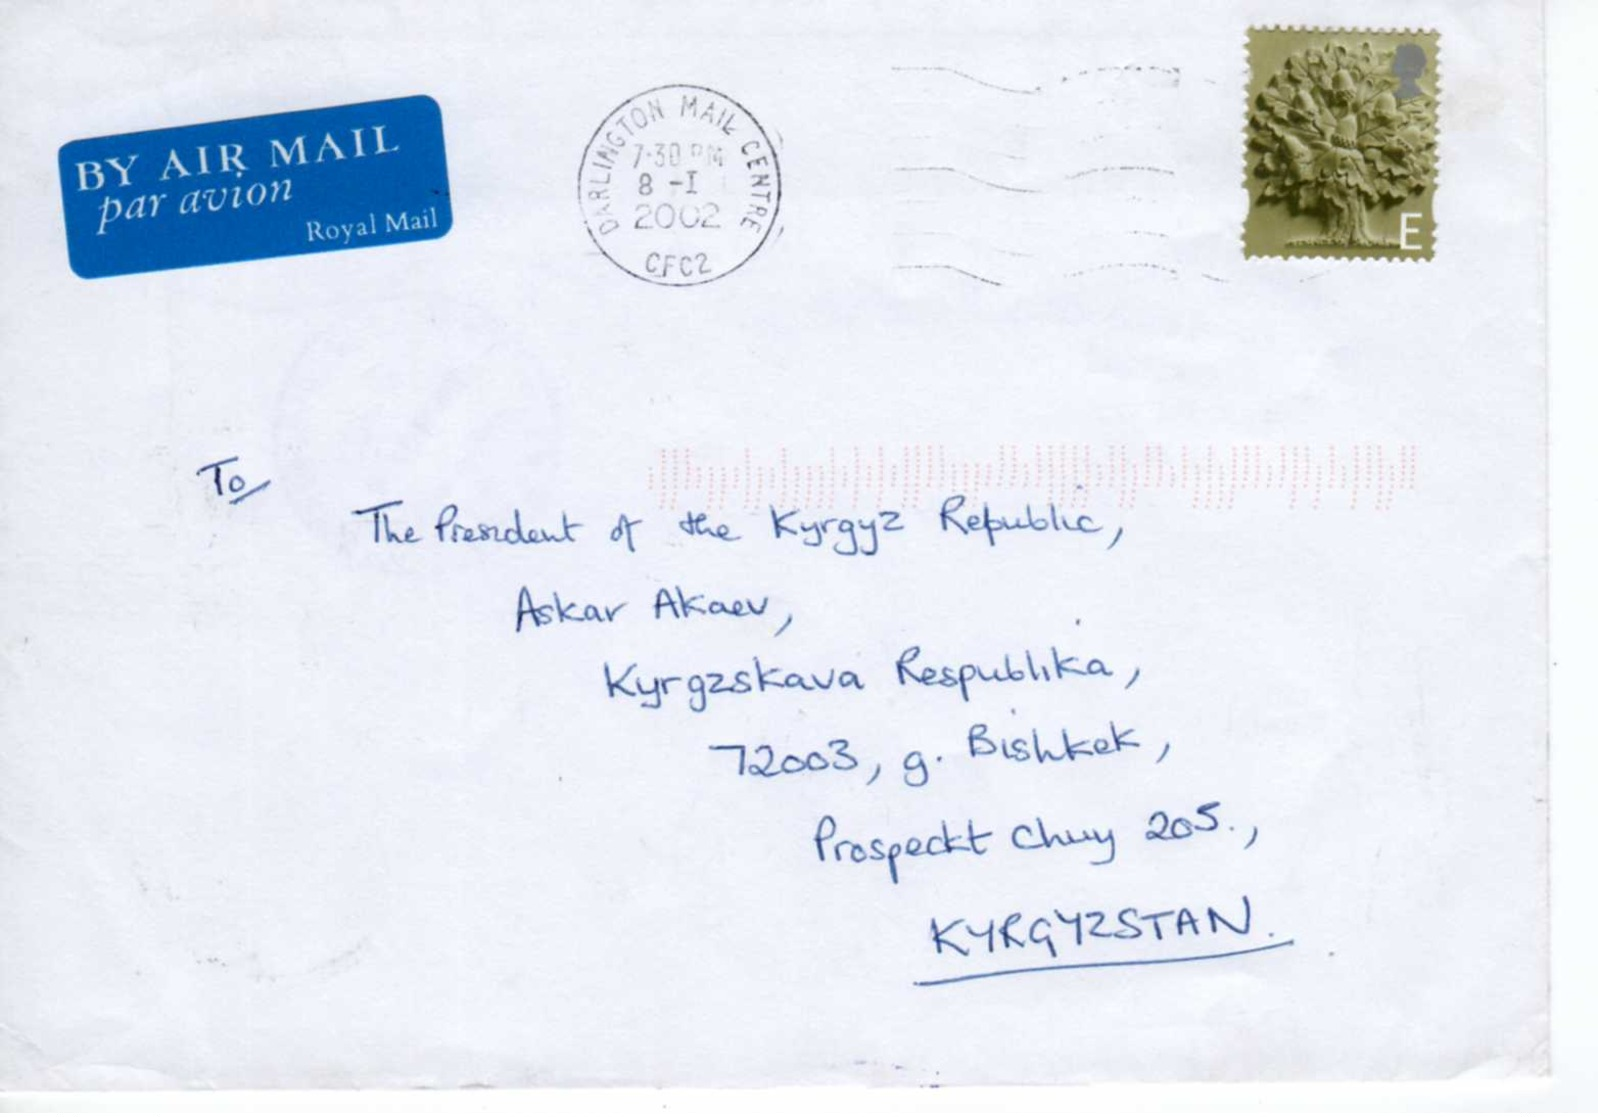 BY AIR MAIL
par avion
Royal Mail
DARLINGTON MAIL CENTRE
7·30 PM
8 -I
2002
CFC2
E
To
The President of the Kyrgyz Republic,
Askar Akaev,
Kyrgzskava Respublika,
72003, g. Bishkek,
Prospeckt Chuy 205.,
KYRGYZSTAN.